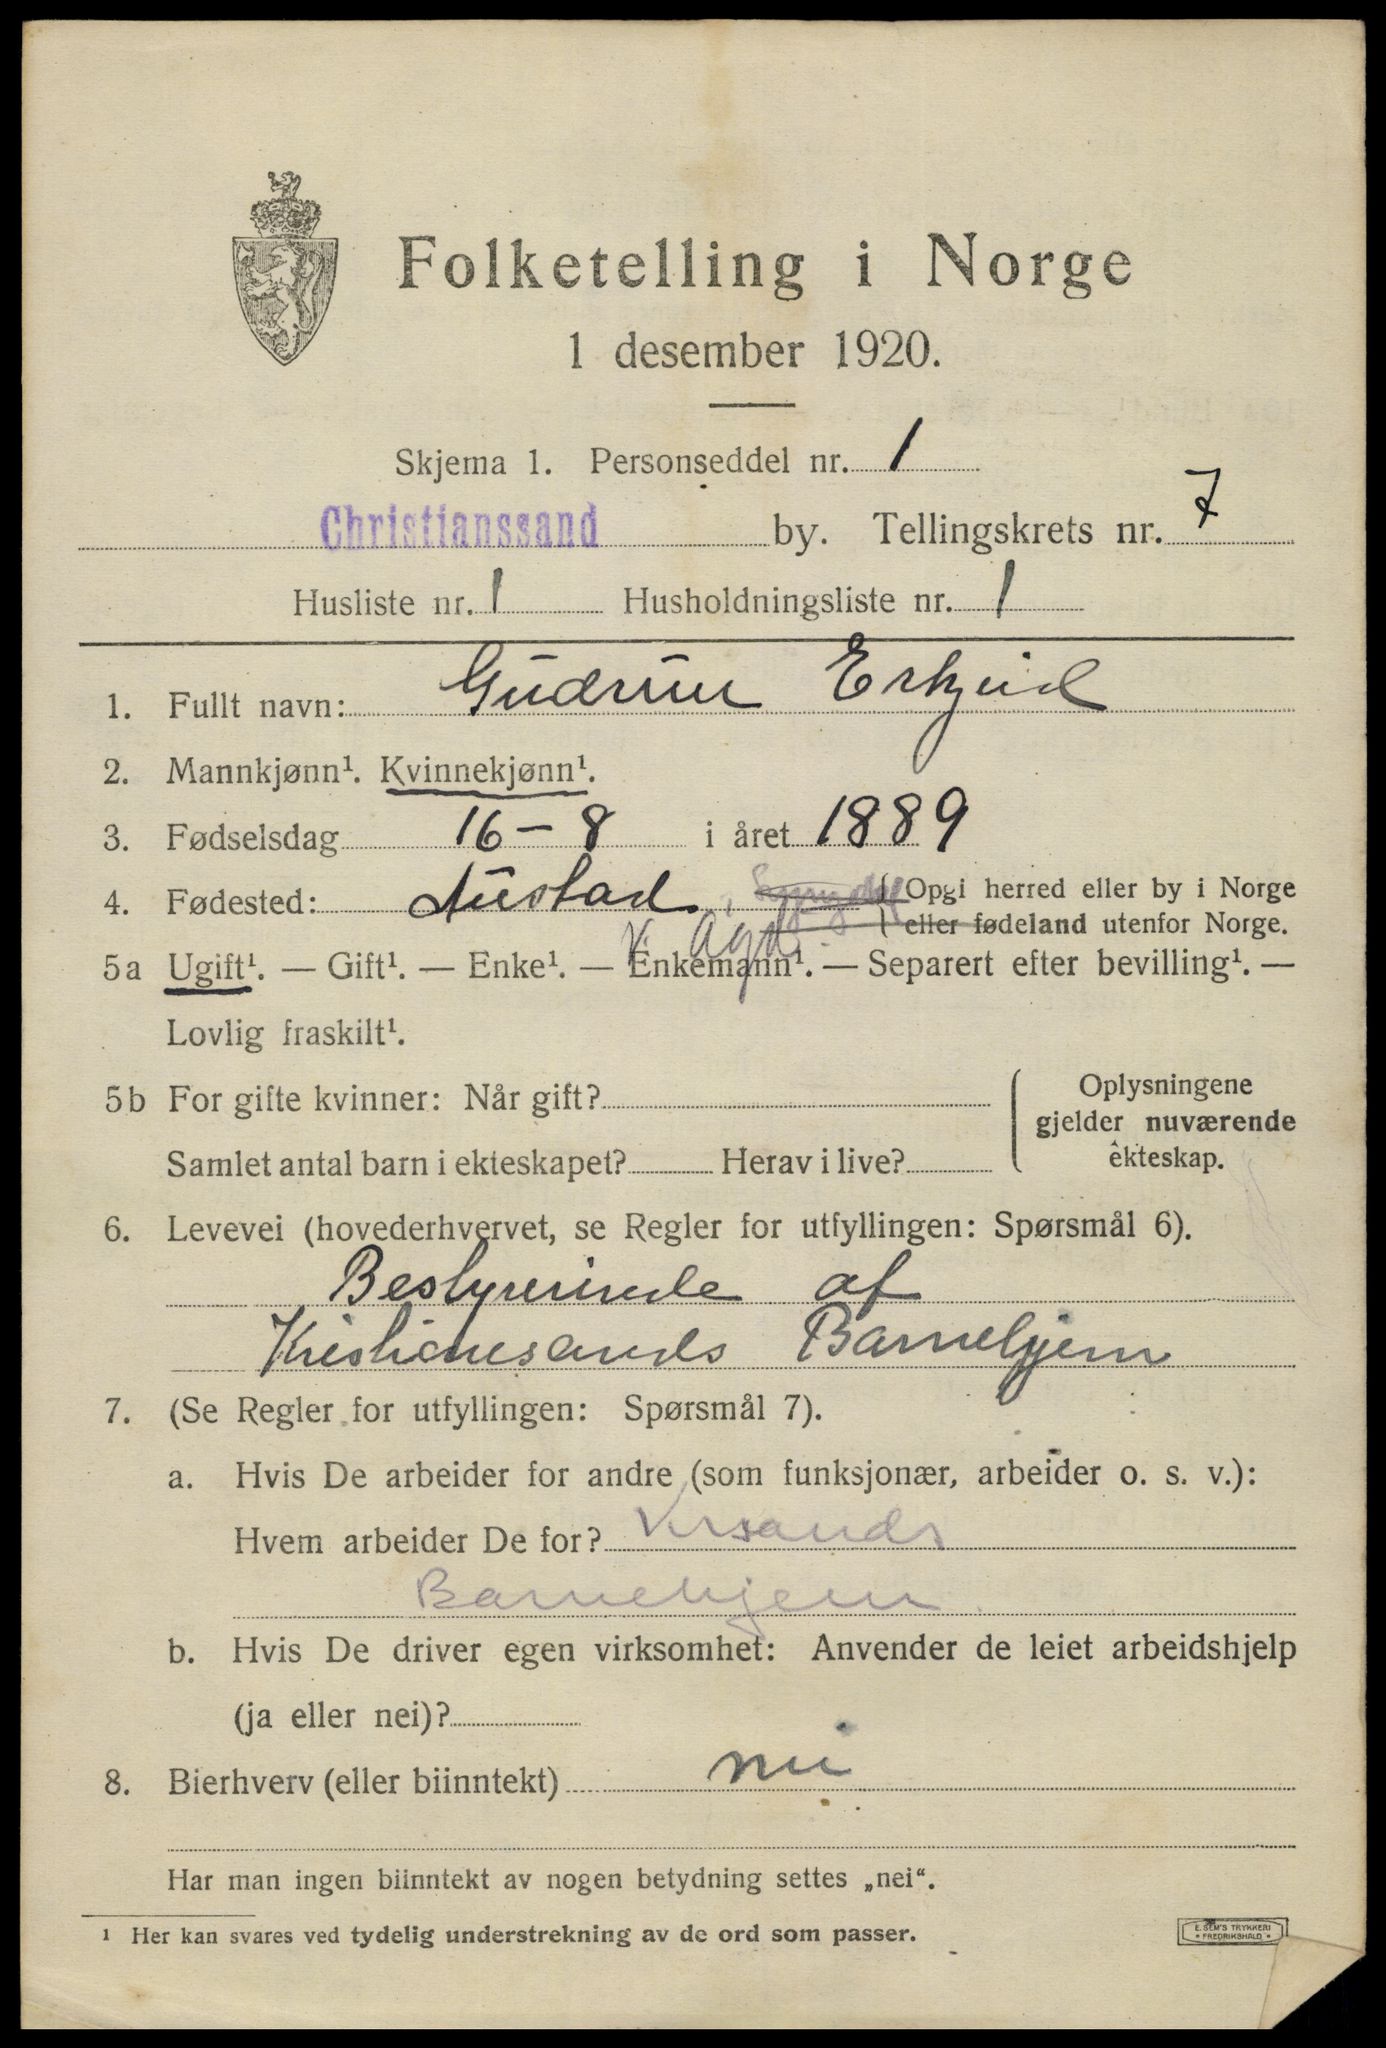 Folketelling i Norge
1 desember 1920.
Skjema 1. Personseddel nr. 1
Christianssand by. Tellingskrets nr. 7
Husliste nr. 1 Husholdningsliste nr. 1
1. Fullt navn: Gudrun Eskjeid
2. Mannkjønn¹. Kvinnekjønn¹.
3. Fødselsdag 16-8 i året 1889
4. Fødested: Austad, Opgi herred eller by i Norge
V. Agd. eller fødeland utenfor Norge.
5a Ugift¹. — Gift¹. — Enke¹. — Enkemann¹. — Separert efter bevilling¹. —
Lovlig fraskilt¹.
5b For gifte kvinner: Når gift? Oplysningene
gjelder nuværende
Samlet antal barn i ekteskapet? Herav i live? ekteskap.
6. Levevei (hovederhvervet, se Regler for utfyllingen: Spørsmål 6).
Bestyrerinde af
Kristianssands Barnehjem
7. (Se Regler for utfyllingen: Spørsmål 7).
a. Hvis De arbeider for andre (som funksjonær, arbeider o. s. v.):
Hvem arbeider De for? Krsands
Barnehjem
b. Hvis De driver egen virksomhet: Anvender de leiet arbeidshjelp
(ja eller nei)?
8. Bierhverv (eller biinntekt) nei
Har man ingen biinntekt av nogen betydning settes „nei“.
¹ Her kan svares ved tydelig understrekning av de ord som passer.
E. SEM'S TRYKKERI
FREDRIKSHALD